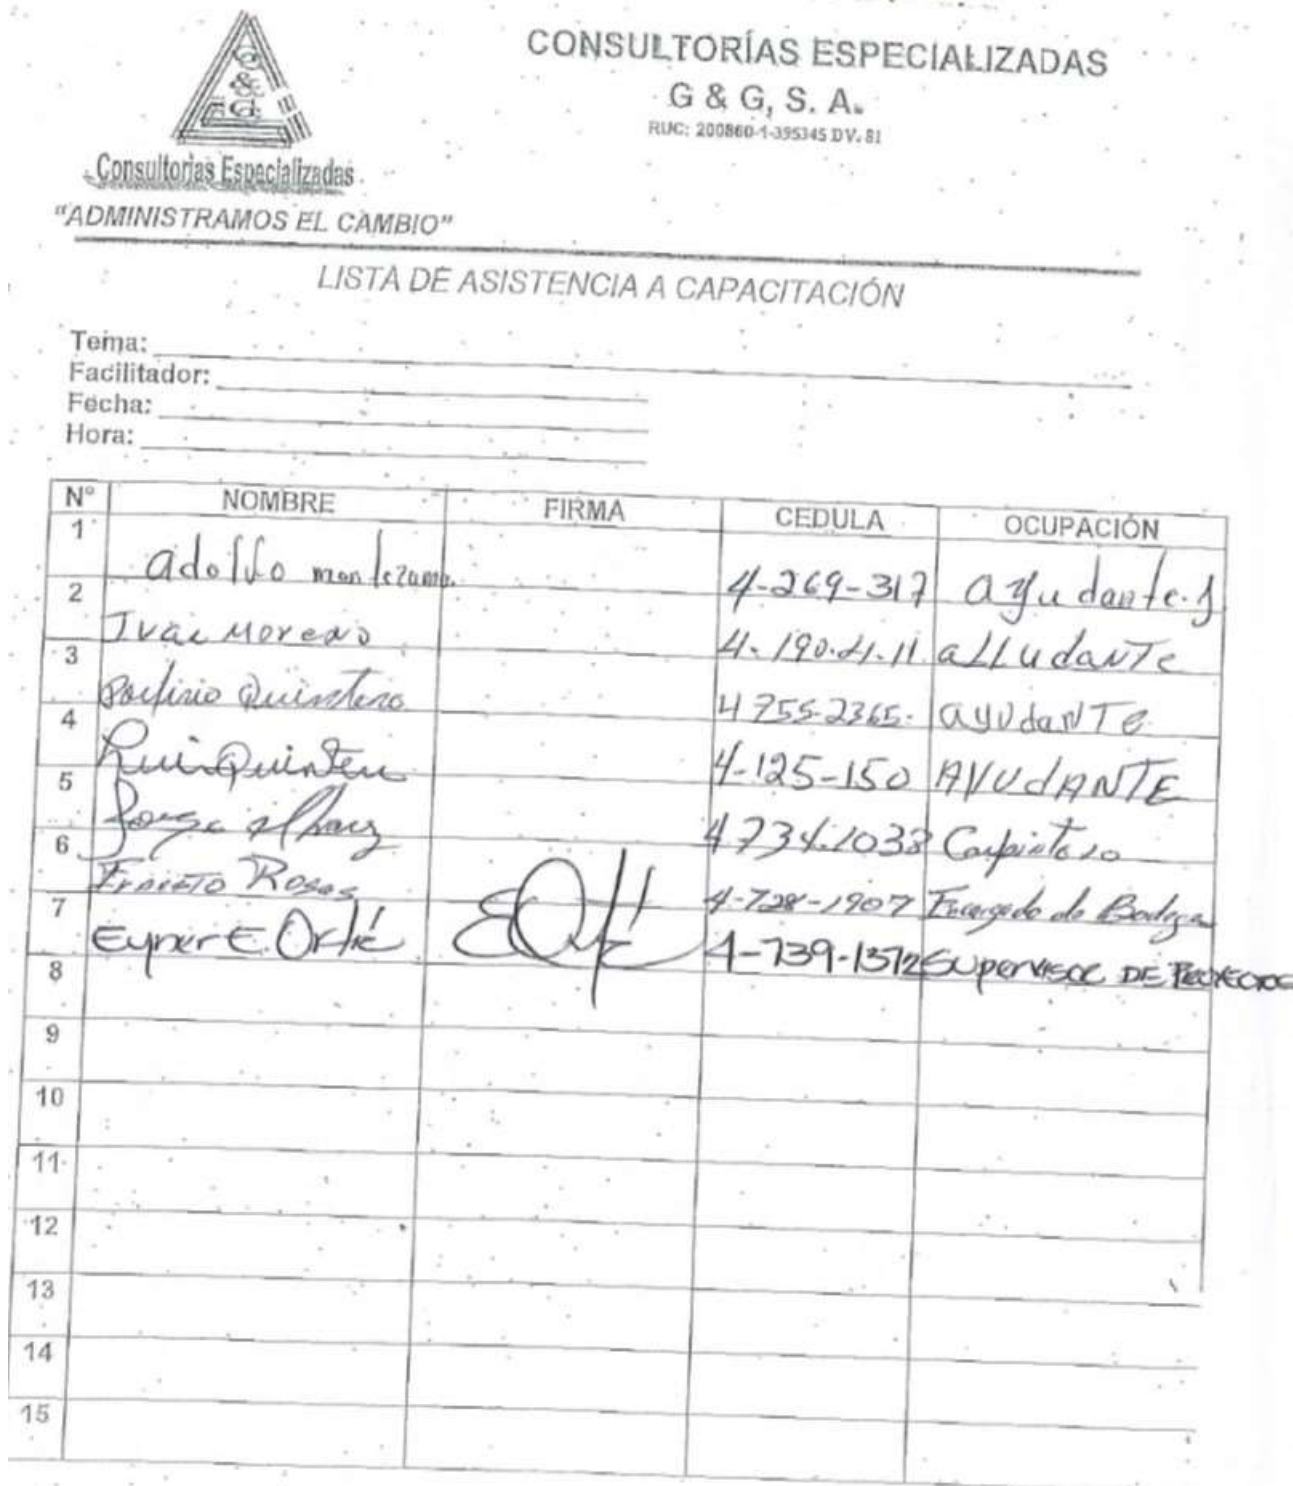 CONSULTORÍAS ESPECIALIZADAS
G & G, S. A.
RUC: 200860-1-395345 DV. 81
G
&
G
Consultorias Especializadas
"ADMINISTRAMOS EL CAMBIO"
LISTA DE ASISTENCIA A CAPACITACIÓN
Tema:
Facilitador:
Fecha:
Hora:
N° NOMBRE FIRMA CEDULA OCUPACIÓN
1 adolfo montezuma 4-269-317 ayudante
2 Ivan Moreno aLLudaNTe
3 Porfirio Quintero 4 755-2365- ayudaNTe
4 Luis Quintero 4-125-150 AYUdANTE
5 Jorge 4 734-1038 Carpintero
6 Ernesto Rosas 4-728-1907 Encargado de Bodega
7 Eyner E Ortíz 4-739-1372 Supervisor DE PROYECTOS
8
9
10
11
12
13
14
15